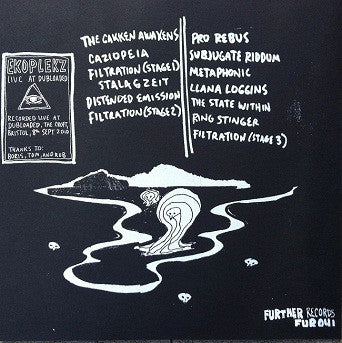 EKOPLEKZ
LIVE AT DUBLOADED
RECORDED LIVE AT
DUBLOADED, THE CROFT,
BRISTOL, 8th SEPT 2010
THANKS TO:
BORIS, TOM, AND ROB
THE GAKKEN AWAKENS
CAZIOPEIA
FILTRATION (STAGE 1)
STALAGZEIT
DISTENDED EMISSION
FILTRATION (STAGE 2)
PRO REBUS
SUBJUGATE RIDDUM
METAPHONIC
LLANA LOGGINS
THE STATE WITHIN
RING STINGER
FILTRATION (STAGE 3)
FURTHER RECORDS
FUR041